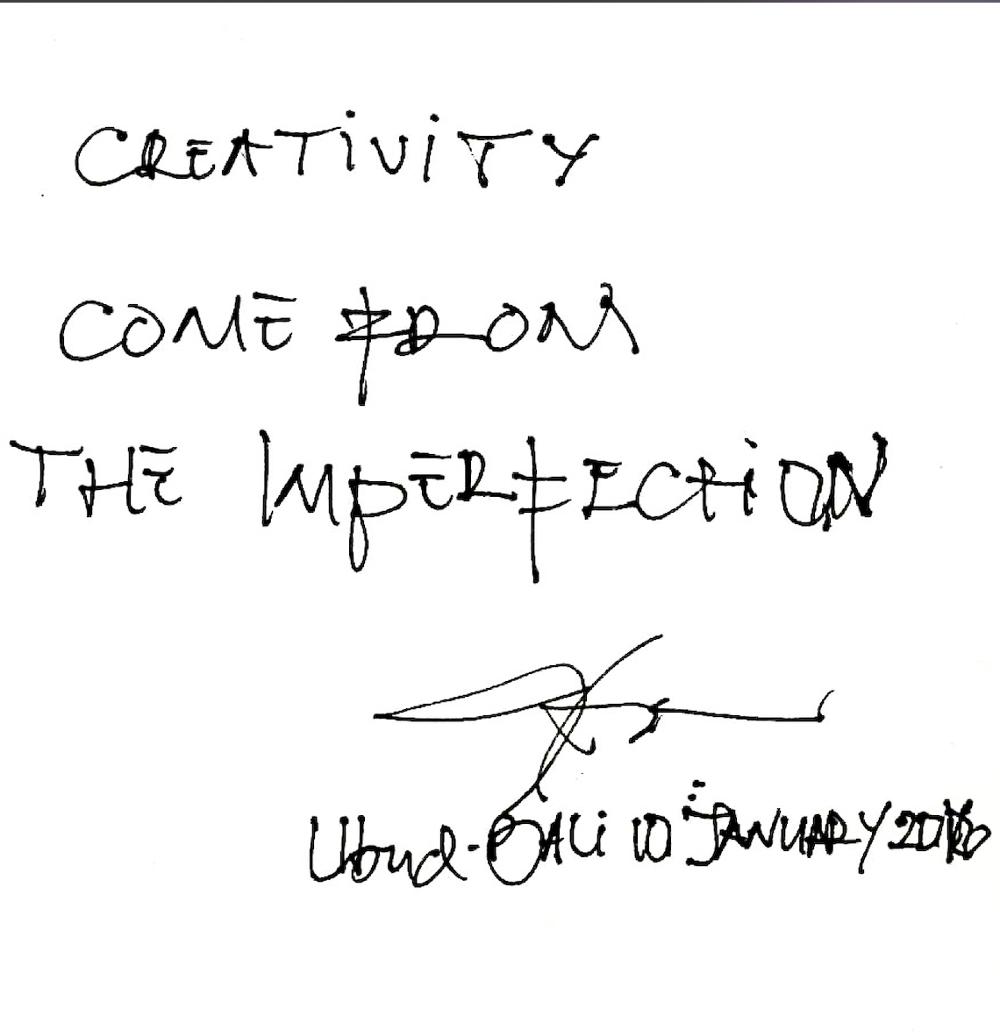 CREATiViTY
COME FROM
THE IMPERFECTiON
Ubud-BALi 10 JANUARY